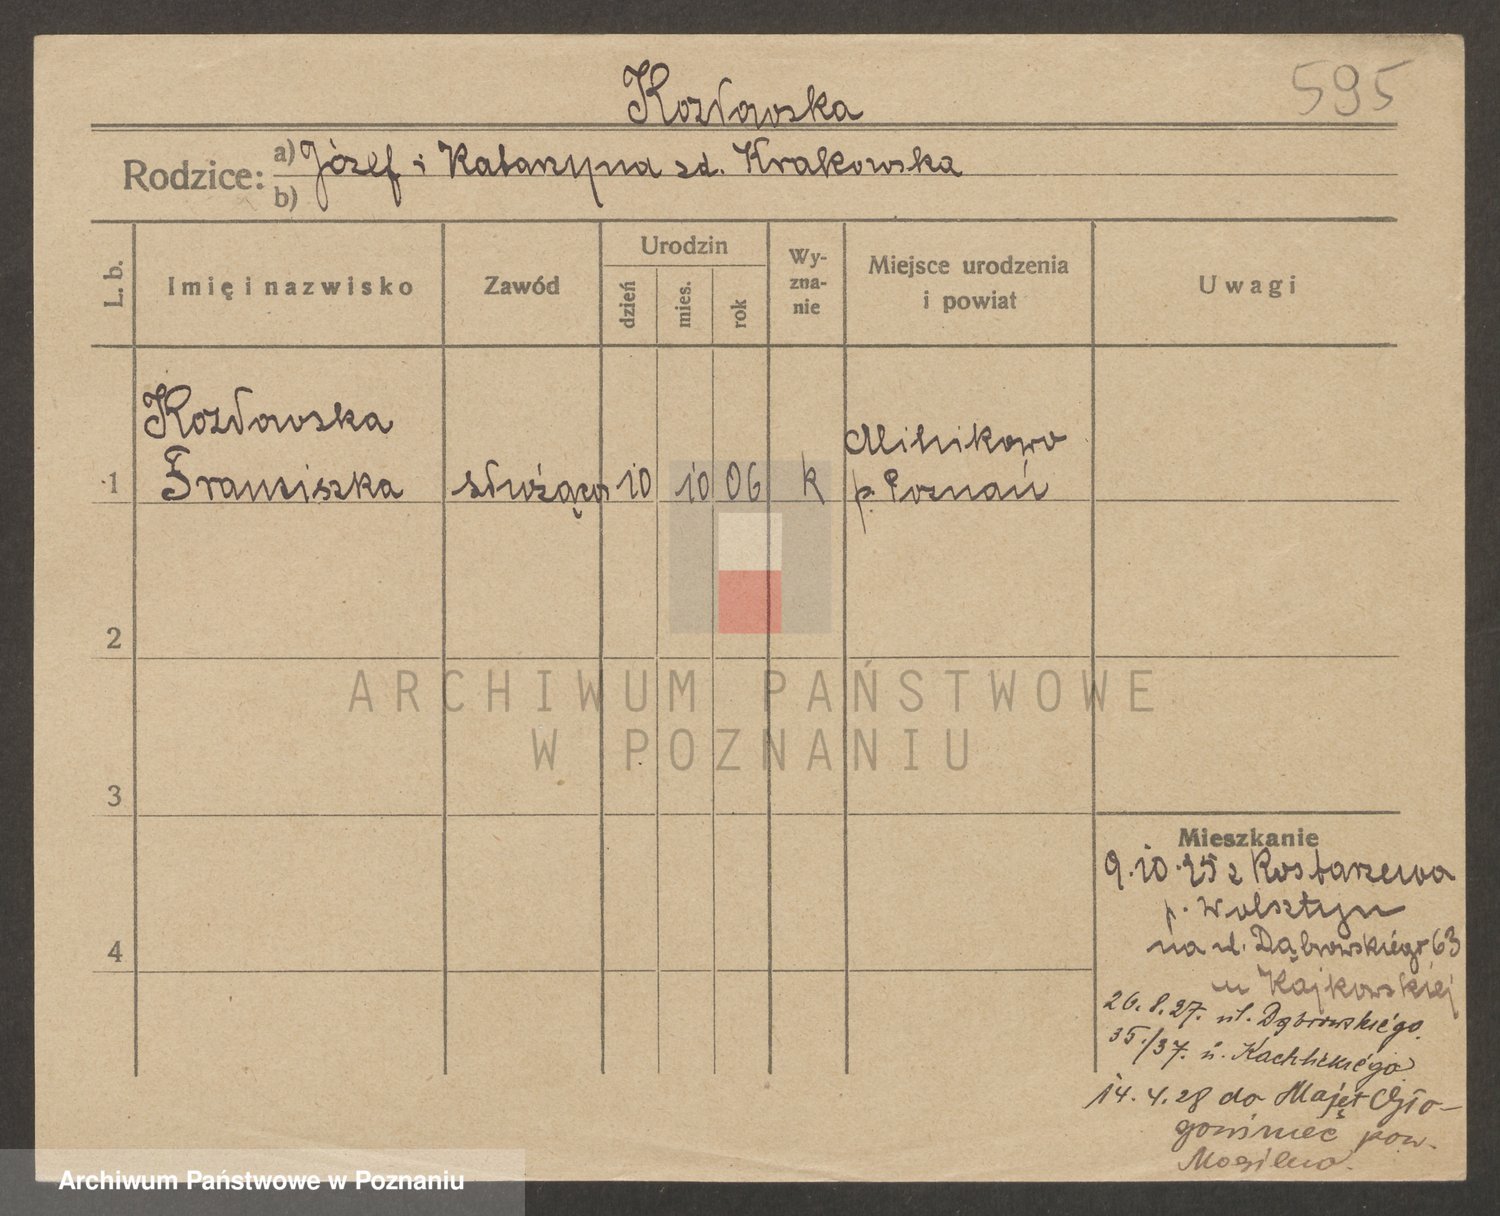 Kozłowska
595
Rodzice: a) Józef i Katarzyna zd. Krakowska
b)
L. b.
Imię i nazwisko
Zawód
Urodzin
dzień
mies.
rok
Wy-
zna-
nie
Miejsce urodzenia
i powiat
Uwagi
Kozłowska
Franciszka
1
służąca
10
10
06
k
p. Poznań
2
3
4
ARCHIWUM PAŃSTWOWE
W POZNANIU
Mieszkanie
9.10.25 z Rostarzewa
p. Wolsztyn
na ul. Dąbrowskiego 63
u Kajkowskiej
26.8.27. ul. Dąbrowskiego
35./37. u.
14.4.28 do Majęt
pow.
Mogilno.
Archiwum Państwowe w Poznaniu